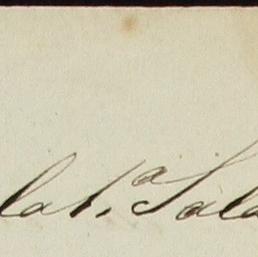 lat.ª Sala